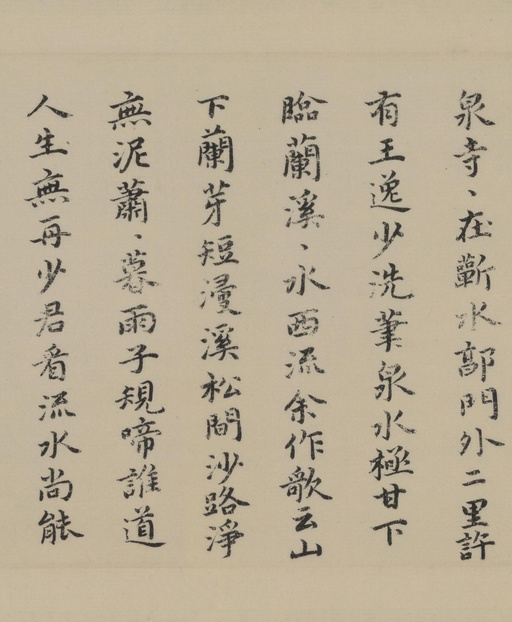 泉寺、在蘄水郭門外二里許
有王逸少洗筆泉水極甘下
臨蘭溪、水西流余作歌云山
下蘭芽短漫溪松間沙路淨
無泥蕭、暮雨子規啼誰道
人生無再少君看流水尚能